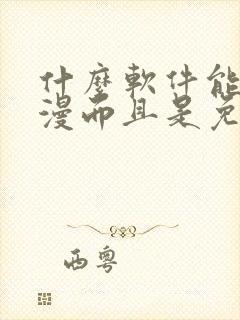 什麼軟件能
漫而且是免
西粵